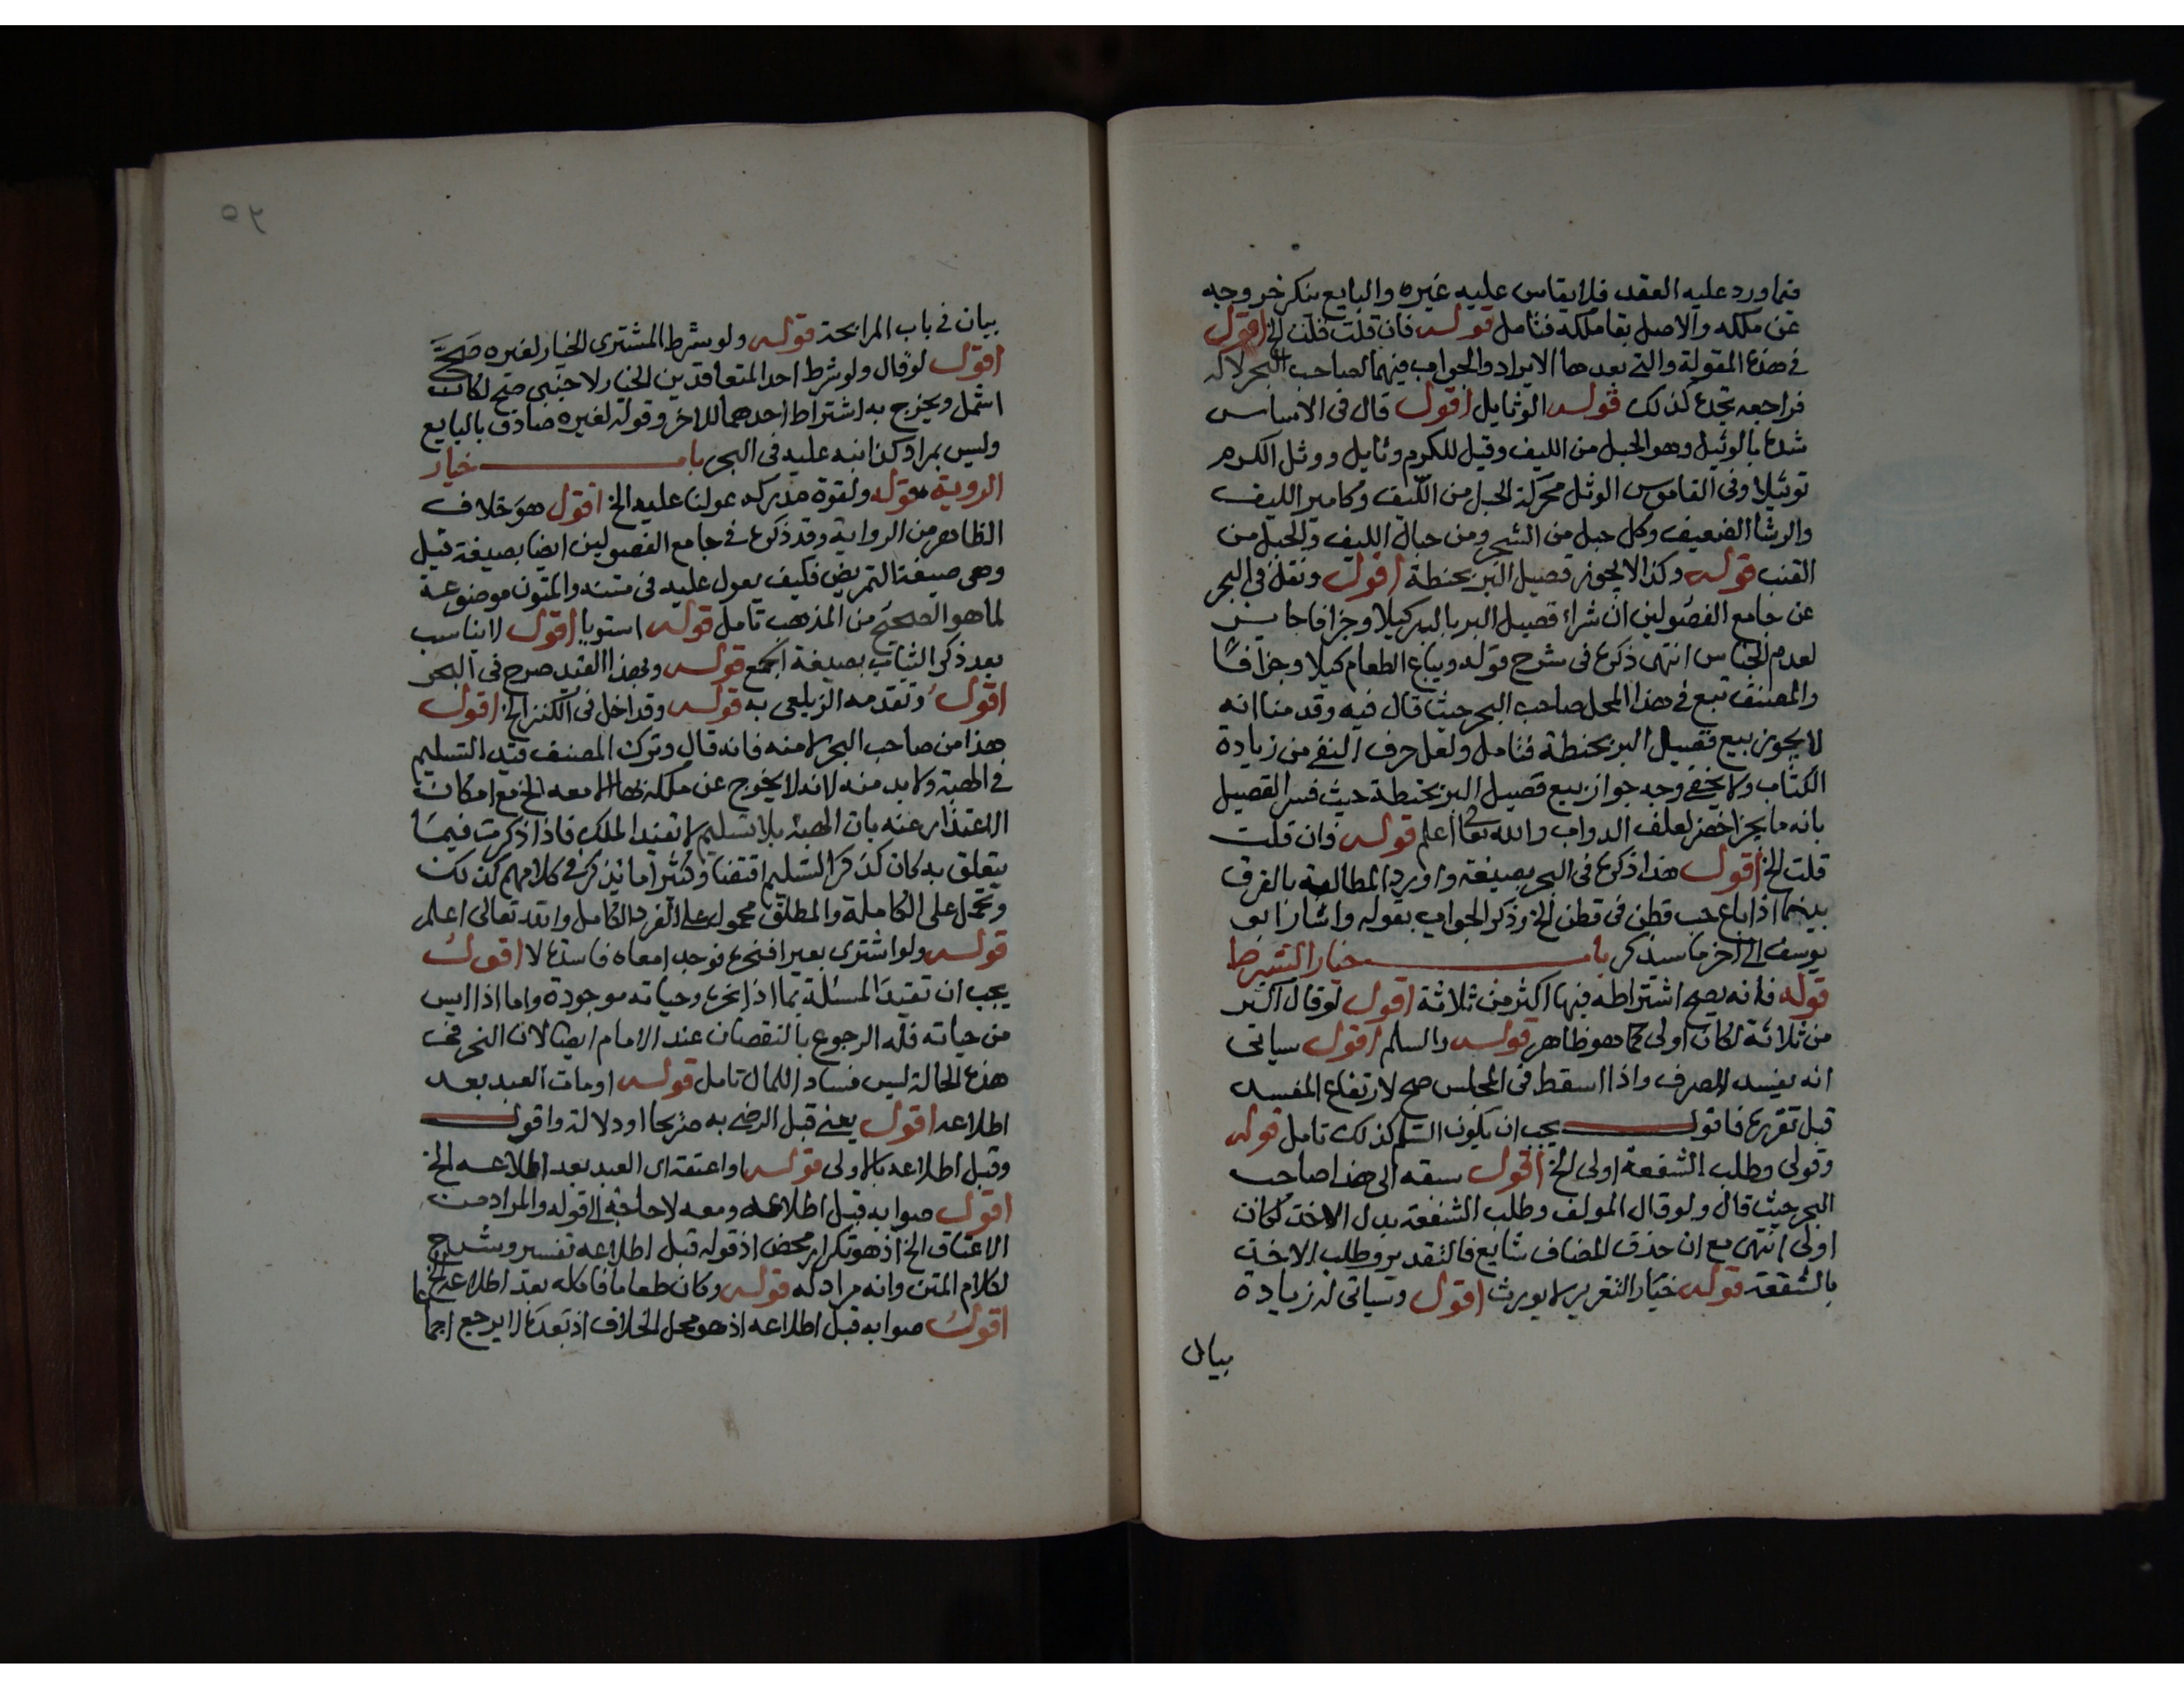 فيما ورد عليه العقد فلا يقاس عليه غيره والبايع ينكر خروجه
عن ملكه والاصل بقا ملكه فتامل قوله فان قلت قلت الخ اقول
في هذه المقولة والتي بعدها الايراد والجواب فيهما لصاحب البحر لا له
فراجعه تجده كذلك قوله الوثايل اقول قال في الاساس
شده بالوثيل وهو الحبل من الليف وقيل للكروم وثايل ووثل الكرم
توثيلا وفي القاموس الوثل محركة الحبل من الليف وكامير الليف
والرشا الضعيف وكل حبل من الشجر ومن حبال الليف والحبل من
القنب قوله وكذا لا يجوز قصيل البر بحنطة اقول ونقل في البحر
عن جامع الفصولين ان شراء قصيل البر بالبر كيلا وجزافا جايز
لعدم الجناس انتهى ذكره في شرح قوله ويباع الطعام كيلا وجزافا
والمصنف تبع في هذا المحل صاحب البحر حيث قال فيه وقدمنا انه
لا يجوز بيع قصيل البر بحنطة فتامل ولعل حرف النفي من زيادة
الكتاب ولا يخفى وجه جواز بيع قصيل البر بحنطة حيث فسر القصيل
بانه ما يجز اخضر لعلف الدواب والله تعالى اعلم قوله وان قلت
قلت الخ اقول هذا ذكره في البحر بصيغة واورد المطالبة بالفرق
بينهما اذا باع حب قطن في قطن الخ وذكر الجواب بقوله واشار ابو
يوسف الى اخر ما سيذكر باب خيار الشرط
قوله فانه يصح اشتراطه فيها اكثر من ثلاثة اقول لو قال اكثر
من ثلاثة لكان اولى كما هو ظاهر قوله والسلم اقول سياتي
انه يفسد الصرف واذا اسقط في المجلس صح لارتفاع المفسد
قبل تقرره فاقول يجب ان يكون السلم كذلك تامل قوله
وقولي وطلب الشفعة اولى الخ اقول سبقه الى هذا صاحب
البحر حيث قال ولو قال المولف وطلب الشفعة بدل الاخذ لكان
اولى انتهى مع ان حذف المضاف شايع فالتقدير وطلب الاخذ
بالشفعة قوله خيار التغرير لا يورث اقول وسياتي له زيادة
بيان
٥٢
بيان في باب المرابحة قوله ولو شرط المشتري الخيار لغيره صح
اقول لو قال ولو شرط احد المتعاقدين الخيار لاجنبي صح لكان
اشمل ويخرج به اشتراط احدهما للاخر وقوله لغيره صادق بالبايع
وليس بمراد كذا نبه عليه في البحر باب خيار
الروية قوله ولقوة مدركه عولنا عليه الخ اقول هو خلاف
الظاهر من الرواية وقد ذكره في جامع الفصولين ايضا بصيغة قيل
وهي صيغة التمريض فكيف يعول عليه في متنه والمتون موضوعة
لما هو الصحيح من المذهب تامل قوله استويا اقول لا يناسب
بعد ذكر الثياب بصيغة الجمع قوله وبهذا القيد صرح في البحر
اقول وتقدمه الزيلعي به قوله وقد اخل في الكنز الخ اقول
هذا من صاحب البحر لا منه فانه قال وترك المصنف قيد التسليم
في الهبة ولا بد منه لانه لا يخرج عن ملكه بها الا معه الخ مع امكان
الاعتذار عنه بان الهبة بلا تسليم لا تفيد الملك فاذا ذكرت فيما
يتعلق به كان كذكر التسليم اقتضا وكثيرا ما تذكر في كلامهم كذلك
وتحمل على الكاملة والمطلق محمول على الفرد الكامل والله تعالى اعلم
قوله ولو اشترى بعيرا فنحره فوجد امعاه فاسدة لا اقول
يجب ان تقيد المسئلة بما اذا نحره وحياته موجودة واما اذا ايس
من حياته فله الرجوع بالنقصان عند الامام ايضا لان النحر في
هذه الحالة ليس فساد اللمال تامل قوله او مات العبد بعد
اطلاعه اقول يعني قبل الرضى به صريحا او دلالة واقول
وقبل اطلاعه بالاولى قوله او اعتقه اى العبد بعد اطلاعه الخ
اقول صوابه قبل اطلاعه ومعه لا حاجة الى قوله والمراد من
الاعتاق الخ اذ هو تكرار محض اذ قوله قبل اطلاعه تفسير وشرح
لكلام المتن وانه مراد له قوله وكان طعاما فاكله بعد اطلاعه الخ
اقول صوابه قبل اطلاعه اذ هو محل الخلاف اذ بعده لا يرجع اجماعا